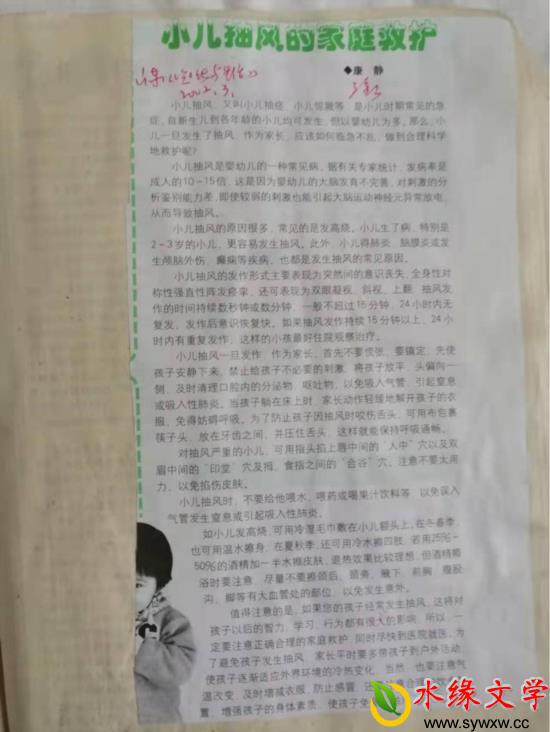 小儿抽风的家庭救护
◆康 静
2002.3.
小儿抽风，又叫小儿抽痉、小儿惊厥等，是小儿时期常见的急
症，自新生儿到各年龄的小儿均可发生，但以婴幼儿为多。那么，小
儿一旦发生了抽风，作为家长，应该如何临急不乱，做到合理科学
地救护呢？
小儿抽风是婴幼儿的一种常见病，据有关专家统计，发病率是
成人的10-15倍，这是因为婴幼儿的大脑发育不完善，对刺激的分
析鉴别能力差，即使较弱的刺激也能引起大脑运动神经元异常放电，
从而导致抽风。
小儿抽风的原因很多，常见的是发高烧。小儿生了病，特别是
2-3岁的小儿，更容易发生抽风。此外，小儿得肺炎、脑膜炎或发
生颅脑外伤、癫痫等疾病，也都是发生抽风的常见原因。
小儿抽风的发作形式主要表现为突然间的意识丧失，全身性对
称性强直性阵发痉挛，还可表现为双眼凝视、斜视、上翻，抽风发
作的时间持续数秒钟或数分钟，一般不超过15分钟，24小时内无
复发，发作后意识恢复快。如果抽风发作持续15分钟以上，24小
时内有重复发作，这样的小孩最好住院观察治疗。
小儿抽风一旦发作，作为家长，首先不要慌张，要镇定，先使
孩子安静下来，禁止给孩子不必要的刺激，将孩子放平，头偏向一
侧，及时清理口腔内的分泌物、呕吐物，以免吸入气管，引起窒息
或吸入性肺炎。当孩子躺在床上时，家长动作轻缓地解开孩子的衣
服，免得妨碍呼吸。为了防止孩子因抽风时咬伤舌头，可用布包裹
筷子头，放在牙齿之间，并压住舌头，这样就能保持呼吸通畅。
对抽风严重的小儿，可用指头掐上唇中间的“人中”穴以及双
眉中间的“印堂”穴及拇、食指之间的“合谷”穴，注意不要太用
力，以免掐伤皮肤。
小儿抽风时，不要给他喂水、喂药或喝果汁饮料等，以免误入
气管发生窒息或引起吸入性肺炎。
如小儿发高烧，可用冷湿毛巾敷在小儿额头上，在冬春季，
也可用温水擦身，在夏秋季，还可用冷水擦四肢，若用25%-
50%的酒精加一半水擦皮肤，退热效果比较理想，但酒精擦
浴时要注意，尽量不要擦颈后、颈旁、腋下、前胸、腹股
沟、脚等有大血管处的部位，以免发生意外。
值得注意的是，如果您的孩子经常发生抽风，这将对
孩子以后的智力、学习、行为都有很大的影响，所以，一
定要注意正确合理的家庭救护，同时尽快到医院就医。为
了避免孩子发生抽风，家长平时要多带孩子到户外活动，
使孩子逐渐适应外界环境的冷热变化，当然，也要注意气
温改变，及时增减衣服，防止感冒，
置，增强孩子的身体素质，使孩子
水缘文学
www.sywxw.cc